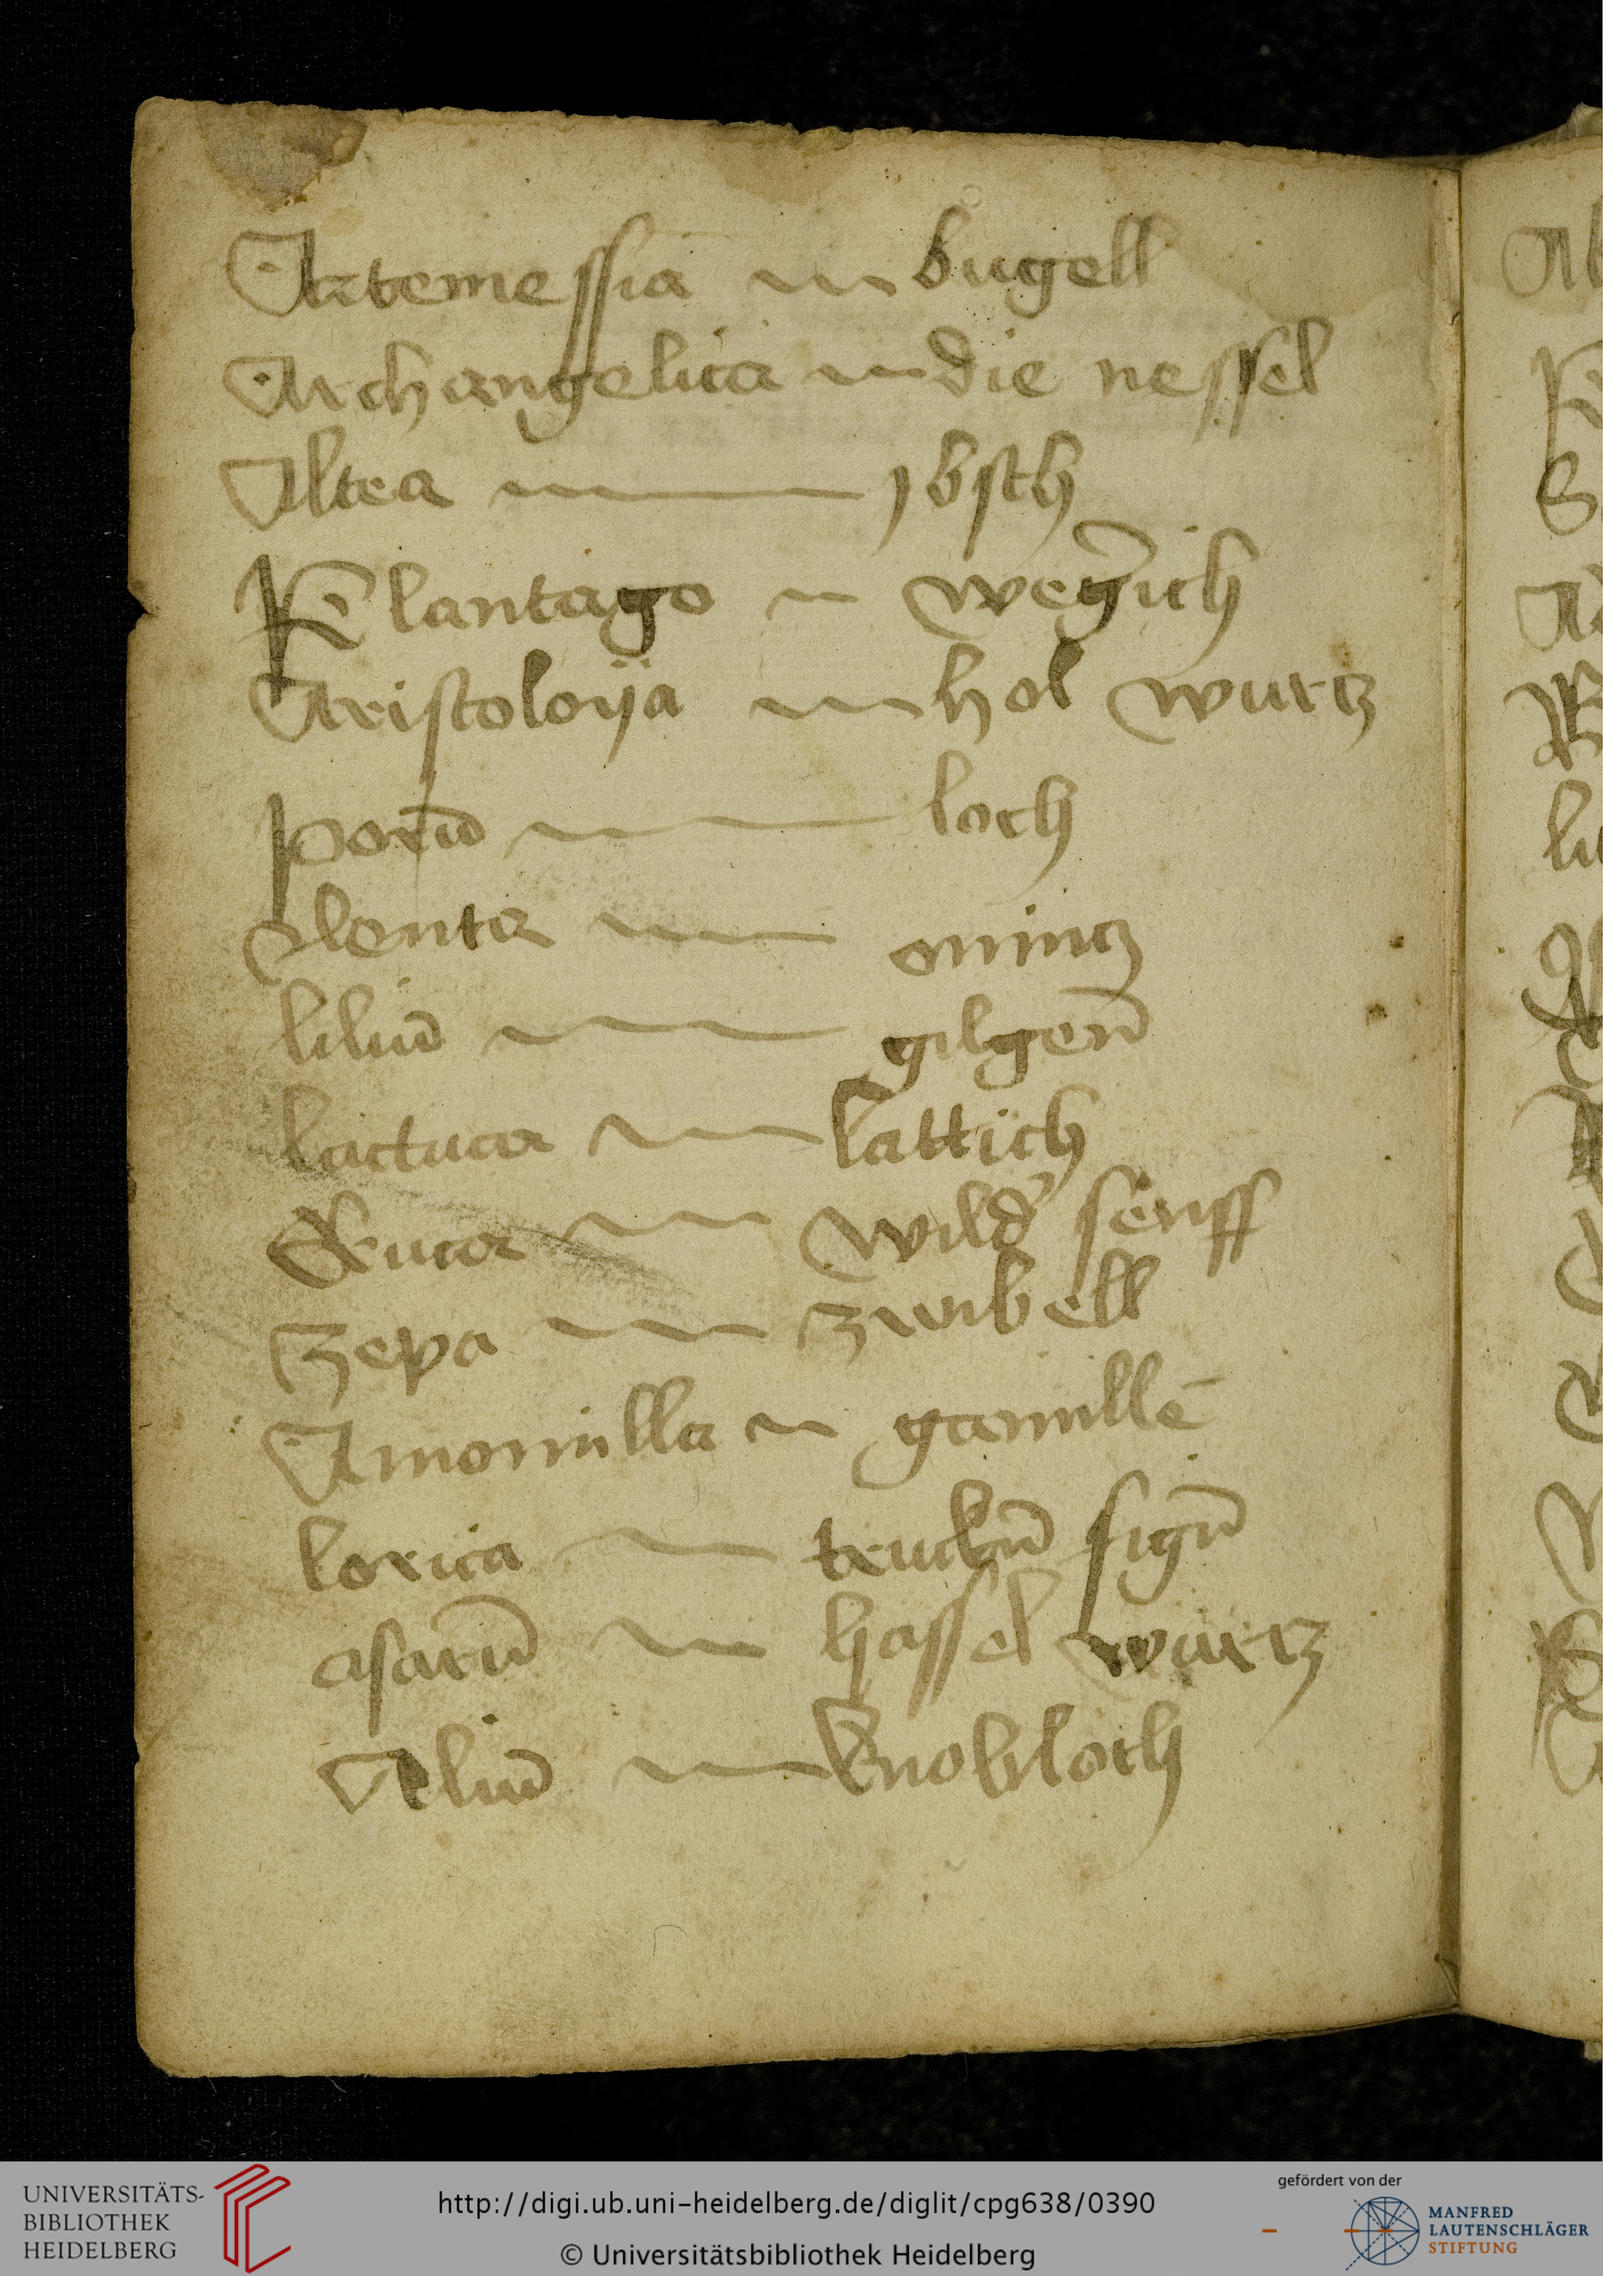 Artemessia bugell
Archangelica die nessel
Altea ybsch
Plantago wegerich
Aristoloija hol wurtz
porū loch
Menta mintz
liliū gilgen̄
lactuca lattich
Eruca wild' senff
zepa zwibell
Amomilla gamillē
lorica
asarū hassel wurtz
Aliū knobloch
UNIVERSITÄTS-
BIBLIOTHEK
HEIDELBERG
http://digi.ub.uni-heidelberg.de/diglit/cpg638/0390
© Universitätsbibliothek Heidelberg
gefördert von der
MANFRED
LAUTENSCHLÄGER
STIFTUNG